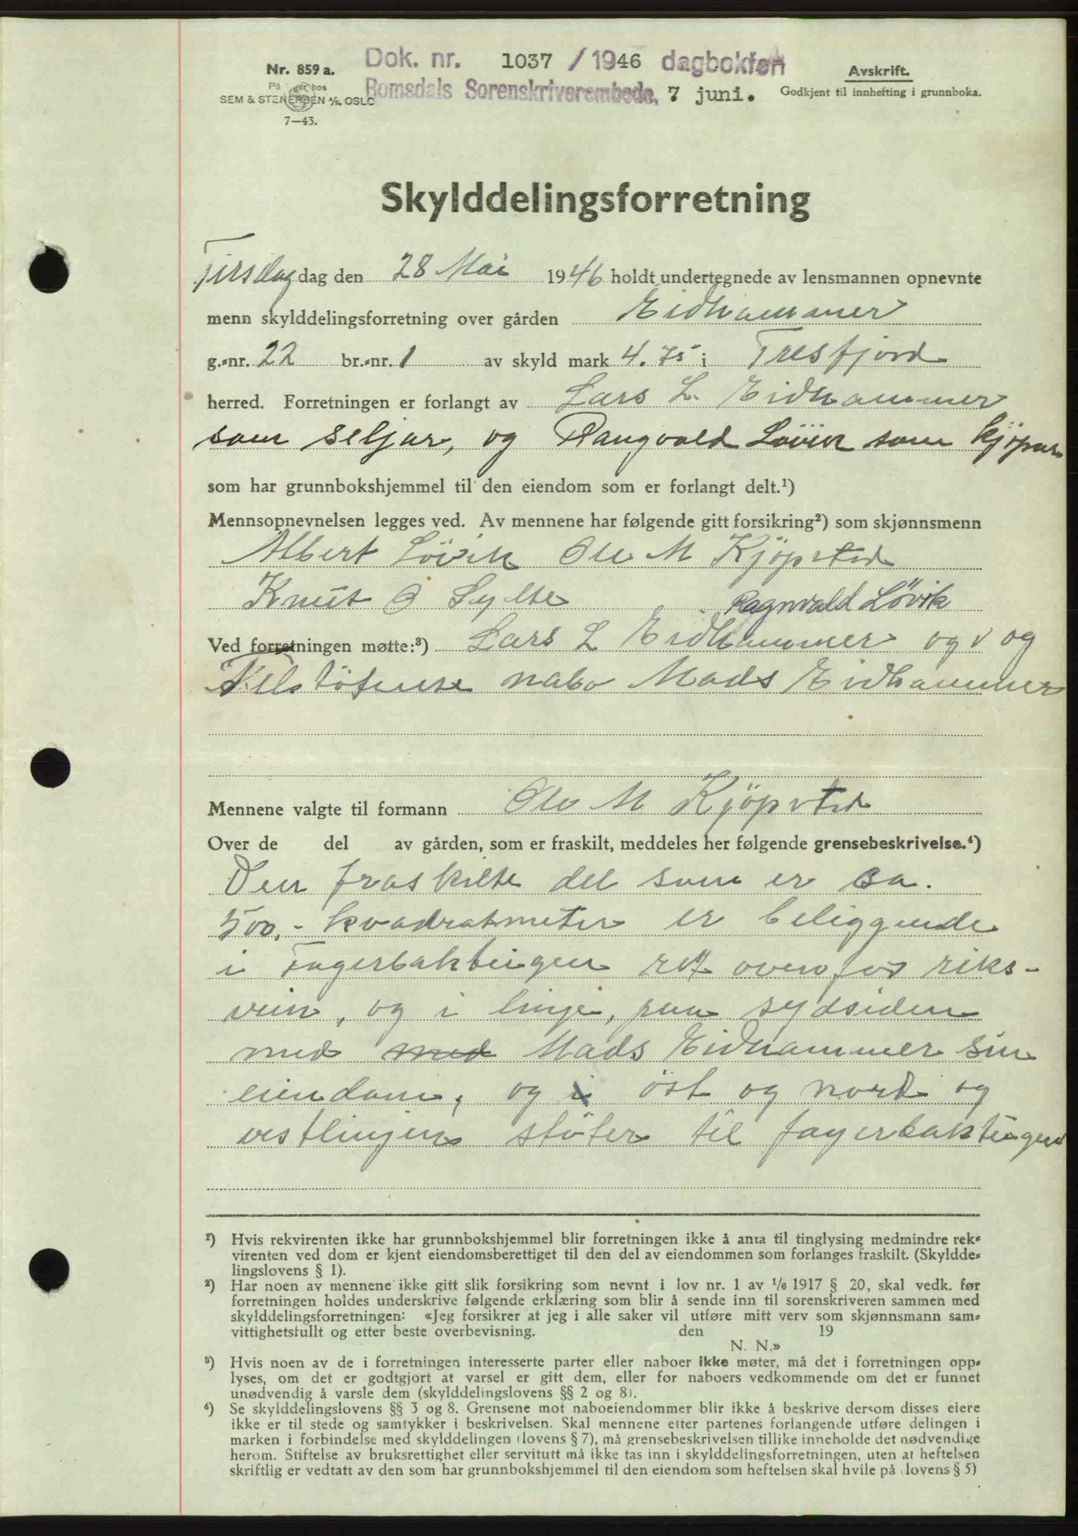 Nr. 859 a.
På hos
SEM & STENERSEN A/S, OSLO
7—43.
Dok. nr. 1037 / 1946 dagbokført
Romsdals Sorenskriverembede, 7 juni.
Avskrift.
Godkjent til innhefting i grunnboka.
Skylddelingsforretning
Tirsdag dag den 28 Mai 1946 holdt undertegnede av lensmannen opnevnte
menn skylddelingsforretning over gården Eidhammer
g.-nr. 22 br.-nr. 1 av skyld mark 4.75 i Tresfjord
herred. Forretningen er forlangt av Lars L. Eidhammer
som seljar, og Rangvald Lövik som kjöpar
som har grunnbokshjemmel til den eiendom som er forlangt delt.¹)
Mennsopnevnelsen legges ved. Av mennene har følgende gitt forsikring²) som skjønnsmenn
Albert Lövik Ole M Kjöpstad
Knut O Sylte
Ragnvald Løvik
Ved forretningen møtte:³) Lars L Eidhammer og v og
Tilstötende nabo Mads Eidhammer
Mennene valgte til formann Ole M Kjöpstad
Over de del av gården, som er fraskilt, meddeles her følgende grensebeskrivelse.⁴)
Den fraskilte del som er ca.
500,- kvadratmeter er beliggende
i Fagerbakteigen ret ovenfor riks-
vein, og i linje, paa sydsiden
med med Mads Eidhammer sin
eiendom, og i öst og nord og
vestlinjen stöter til fagerbakteigen
¹) Hvis rekvirenten ikke har grunnbokshjemmel blir forretningen ikke å anta til tinglysing medmindre rek-
virenten ved dom er kjent eiendomsberettiget til den del av eiendommen som forlanges fraskilt. (Skyldde-
lingslovens § 1).
²) Har noen av mennene ikke gitt slik forsikring som nevnt i lov nr. 1 av 1/6 1917 § 20, skal vedk. før
forretningen holdes underskrive følgende erklæring som blir å sende inn til sorenskriveren sammen med
skylddelingsforretningen: «Jeg forsikrer at jeg i alle saker vil utføre mitt verv som skjønnsmann sam-
vittighetsfullt og etter beste overbevisning. den 19
N. N.»
³) Hvis noen av de i forretningen interesserte parter eller naboer ikke møter, må det i forretningen opp-
lyses, om det er godtgjort at varsel er gitt dem, eller for naboers vedkommende om det er funnet
unødvendig å varsle dem (skylddelingslovens §§ 2 og 8).
⁴) Se skylddelingslovens §§ 3 og 8. Grensene mot naboeiendommer blir ikke å beskrive dersom disses eiere
ikke er til stede og samtykker i beskrivelsen. Skal mennene etter partenes forlangende utføre delingen i
marken i forbindelse med skylddelingen (lovens § 7), må grensebeskrivelsen tillike inneholde det nødvendige
herom. Stiftelse av bruksrettighet eller servitutt må ikke tas inn i skylddelingsforretningen, uten at heftelsen
skriftlig er vedtatt av den som har grunnbokshjemmel til den eiendom som heftelsen skal hvile på (lovens § 5)